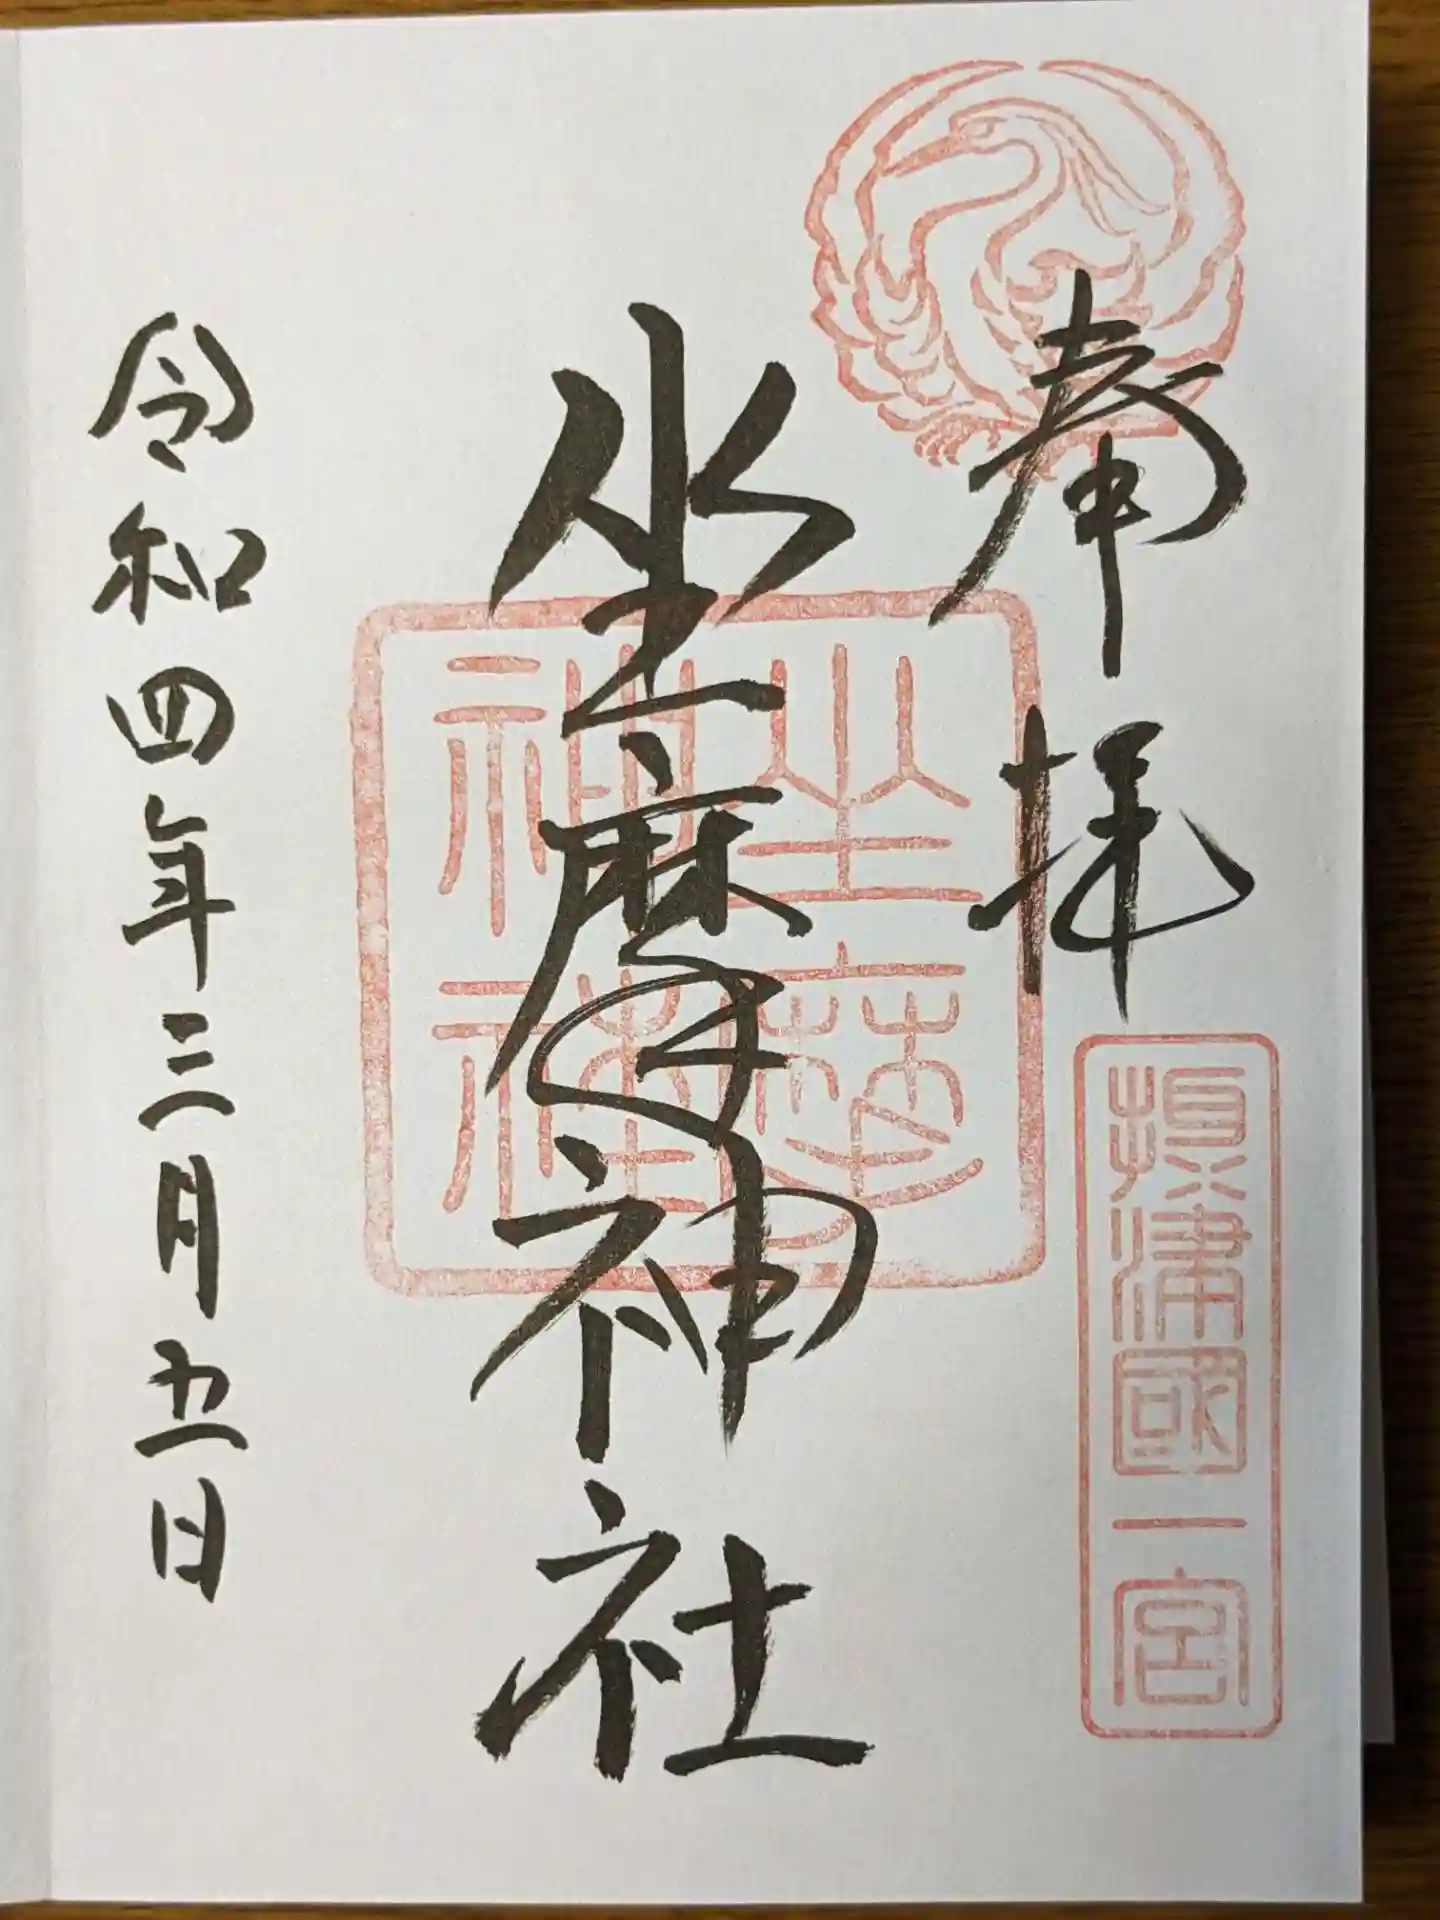 奉拝
摂津國一宮
坐摩神社
坐摩
神社
令和四年三月五日